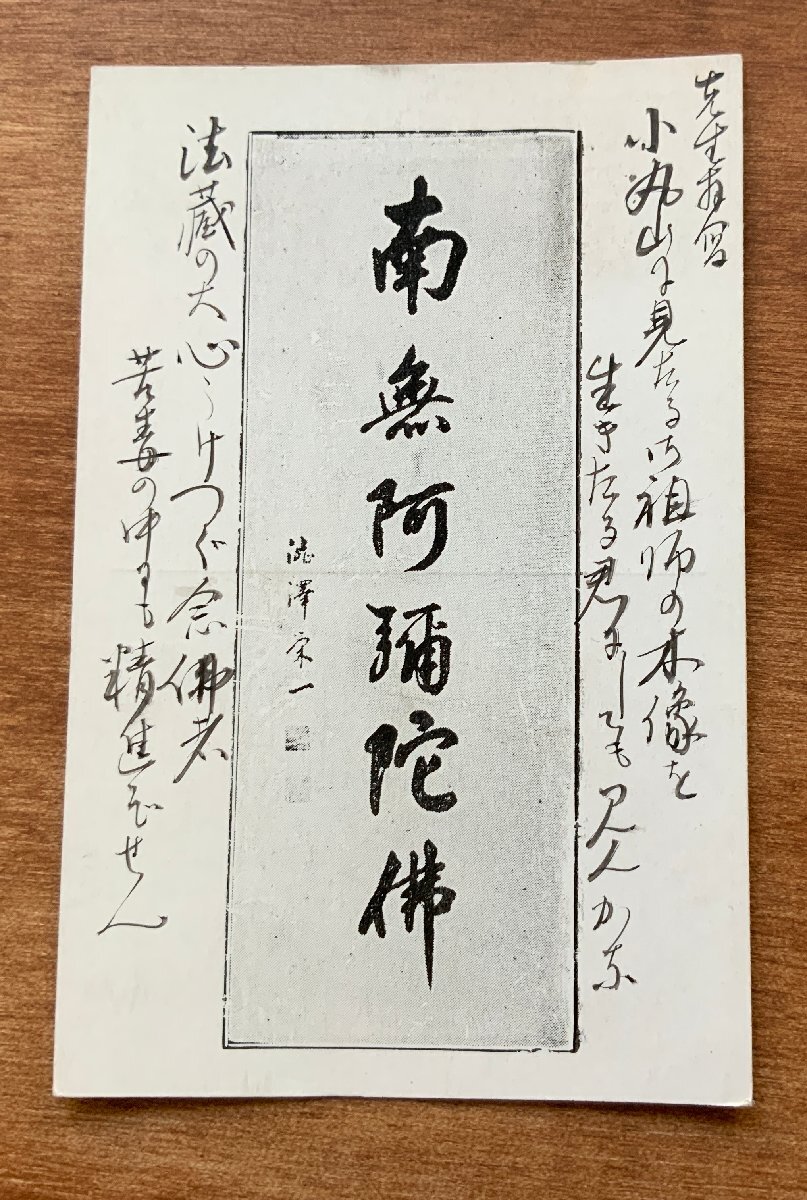 小丸山に見たる御祖師の木像を
生きたる君にしても見んかな
南無阿彌陀佛
澁澤栄一
法蔵の大心うけつぐ念佛者
苦毒の中にも精進ぞせん